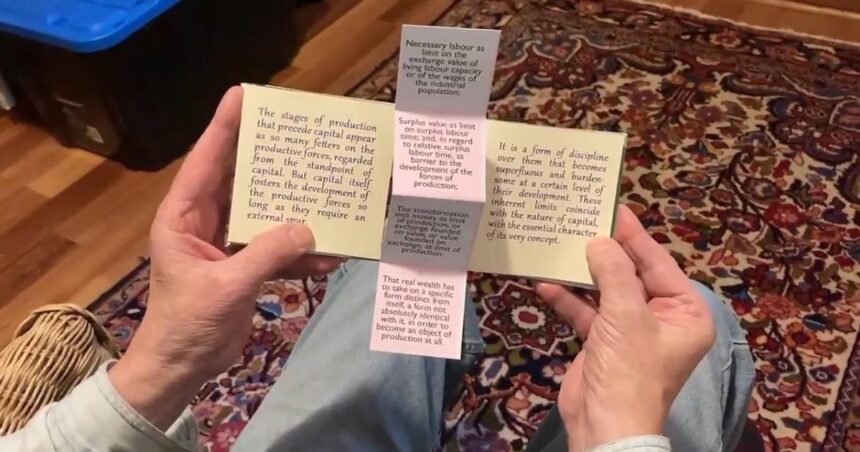 The stages of production
that precede capital appear
as so many fetters on the
productive forces, regarded
from the standpoint of
capital. But capital itself
fosters the development of
the productive forces so
long as they require an
external spur.
Necessary labour as
limit on the
exchange value of
living labour capacity
or of the wages of
the industrial
population;
Surplus value as limit
on surplus labour
time; and, in regard
to relative surplus
labour time, as
barrier to the
development of the
forces of
production;
The transformation
into money as limit
of production, or
exchange founded
on value, or value
founded on
exchange, as limit of
production;
That real wealth has
to take on a specific
form distinct from
itself, a form not
absolutely identical
with it, in order to
become an object of
production at all.
It is a form of discipline
over them that becomes
superfluous and burden-
some at a certain level of
their development. These
inherent limits coincide
with the nature of capital,
with the essential character
of its very concept.